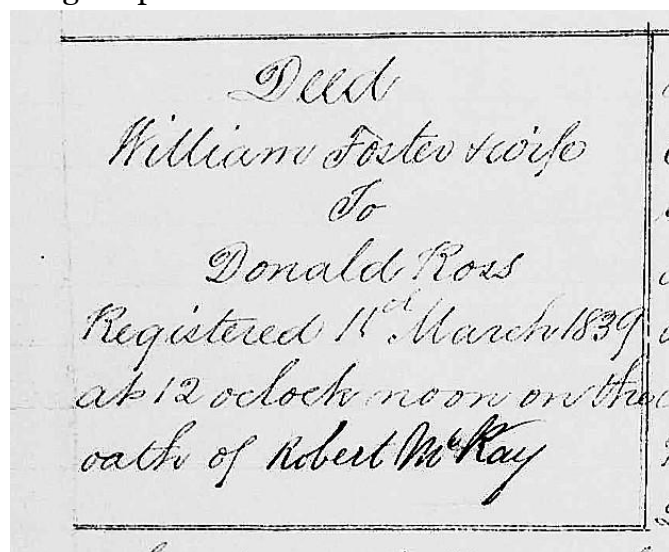 Deed
William Foster & wife
To
Donald Ross
Registered 11d March 1839
at 12 oclock noon on the
oath of Robert McKay